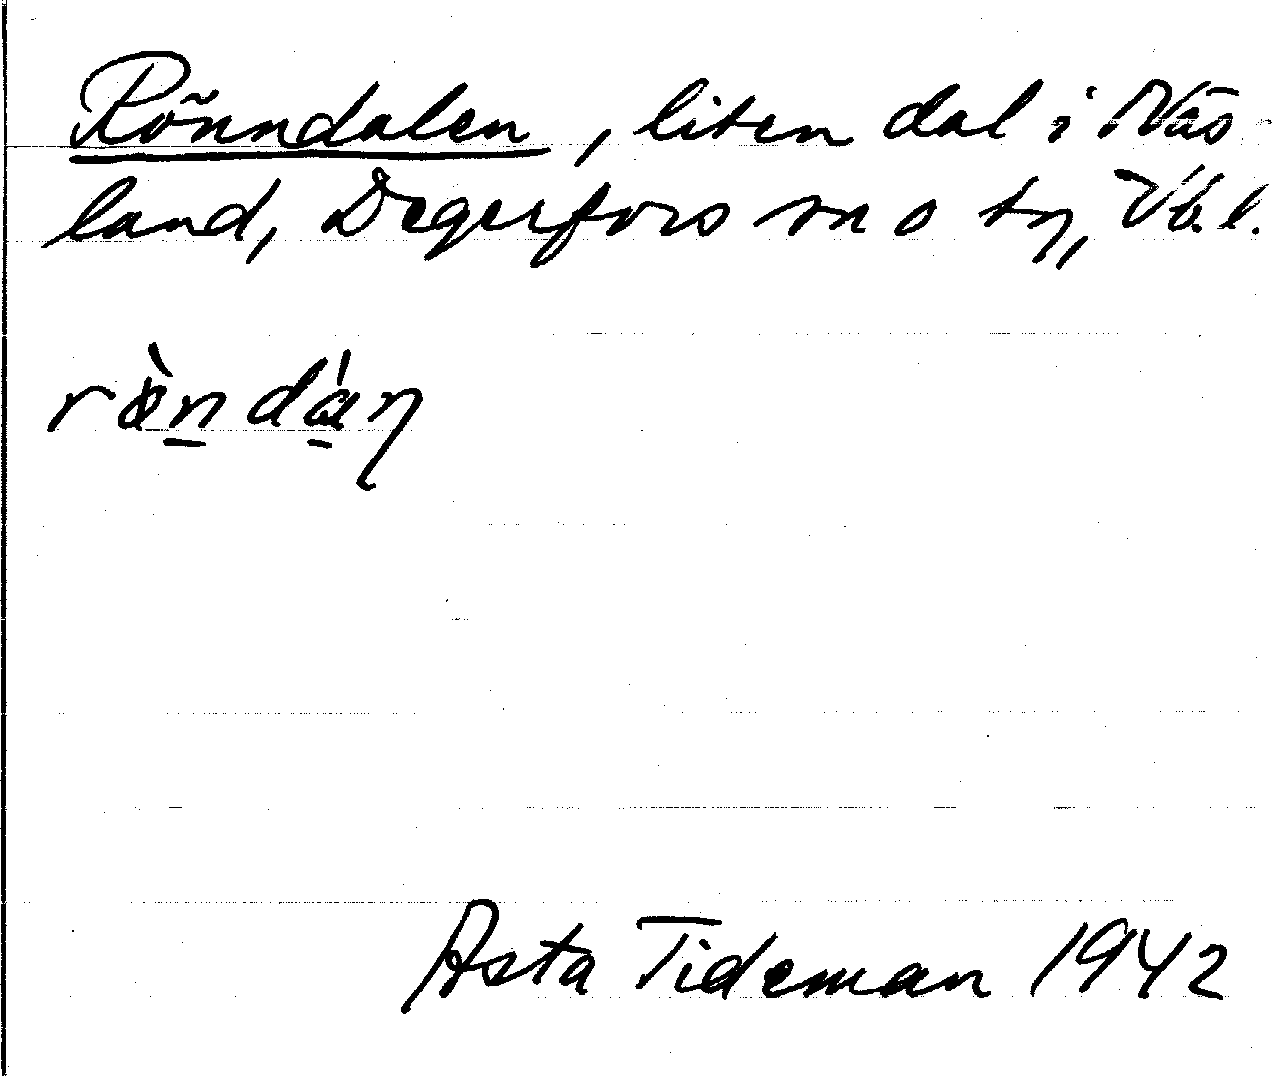 Rönndalen, liten dal i Näs-
land, Degerfors sn o tg, Vb. l.
rö̀n dán
Asta Tideman 1942